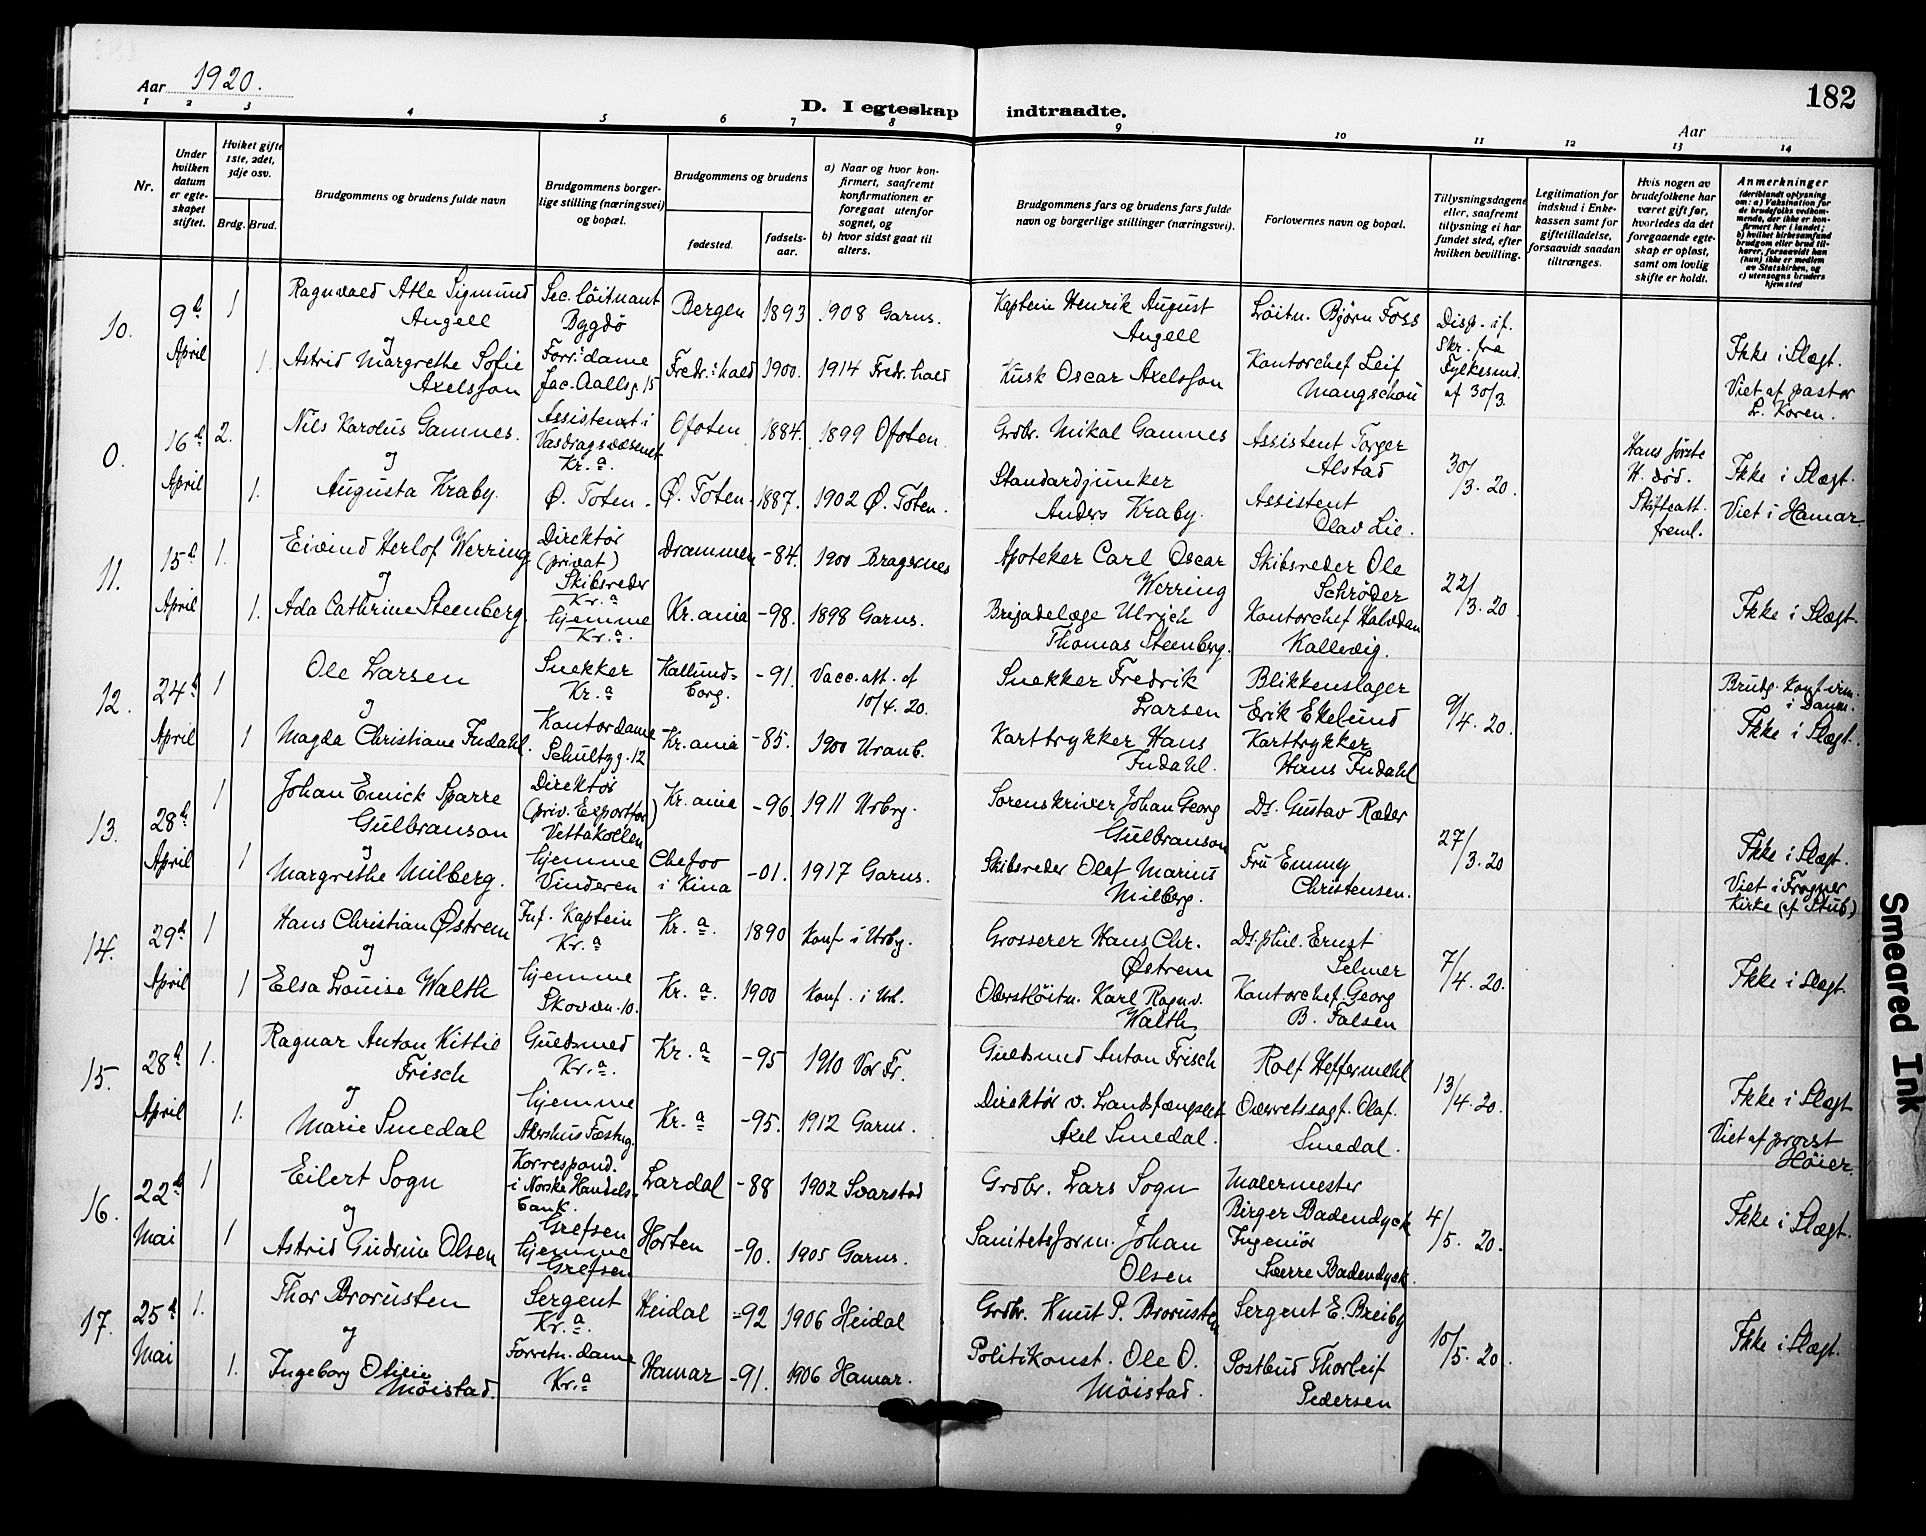 Aar 1920.
D. I egteskap indtraadte.
182
Aar
1 2 3 4 5 6 7 8 9 10 11 12 13 14
Nr.
Under hvilken datum er egteskapet stiftet.
Hvilket gifte 1ste, 2det, 3dje osv.
Brdg. Brud.
Brudgommens og brudens fulde navn
Brudgommens borgerlige stilling (næringsvei) og bopæl.
Brudgommens og brudens
fødested. fødselsaar.
a) Naar og hvor konfirmert, saafremt konfirmationen er foregaat utenfor sognet, og
b) hvor sidst gaat til alters.
Brudgommens fars og brudens fars fulde navn og borgerlige stillinger (næringsvei).
Forlovernes navn og bopæl.
Tillysningsdagene eller, saafremt tillysning ei har fundet sted, efter hvilken bevilling.
Legitimation for indskud i Enkekassen samt for giftetilladelse, forsaavidt saadan tiltrænges.
Hvis nogen av brudefolkene har været gift før, hvorledes da det foregaaende egteskap er opløst, samt om lovlig skifte er holdt.
Anmerkninger
(deriblandt oplysning om: a) Vaksination for de brudefolks vedkommende, der ikke er konfirmert her i landet; b) hvilket kirkesamfund brudgom eller brud tilhører, forsaavidt han (hun) ikke er medlem av Statskirken, og c) utensogns bruders hjemsted
10. 9d April 1 Ragnvald Atle Sigmund Angell Sec. löitnant Bygdö Bergen 1893 1908 Garns. Kaptein Henrik August Angell Löitn. Bjørn Foss Disp. if. Skr. fra Fylkesmd. af 30/3.
og
1. Astrid Margrethe Sofie Axelsson Forr: dame Jac. Aallsg. 15 Fredr:hald 1900. 1914 Fredr. hald Kusk Oscar Axelsson Kontorchef Leif Mangschou Ikke i Slægt. Viet af pastor L. Koren.
0. 16d April 2. Nils Karolus Gamnes. Assistent i Vasdragsvæsenet Kr.a. Ofoten 1884. 1899 Ofoten. Grdbr. Mikal Gamnes Assistent Torger Alstad 30/3. 20. Hans første H. død. Skifteatt. freml. Ikke i Slægt.
og
1. Augusta Kraby. Ø. Toten. Ø. Toten. 1887. 1902 Ø. Toten. Standardjunker Anders Kraby. Assistent Olav Lie. Viet i Hamar
11. 15d April 1. Eivind Herlof Werring Direktör (privat) Skibsreder Kr.a Drammen -84. 1900 Bragernes Apoteker Carl Oscar Werring Skibsreder Ole Schröder 22/3. 20.
og
1. Ada Cathrine Steenberg. hjemme Kr.a. Kr.ania -98. 1898 Garns. Brigadelæge Ulrich Thomas Steenberg. Kontorchef Halvdan Kallevig. Ikke i Slægt.
12. 24d April 1 Ole Larsen Snekker Kr.a Kallundborg. -91. Vacc. att. af 10/4. 20. Snekker Fredrik Larsen Blikkenslager Erik Ekelund 9/4. 20. Brudg. konfirm. i Danm.
og
1 Magda Christiane Indahl. Kontordame Schultzg. 12 Kr.ania -85. 1900 Uranb. Karttrykker Hans Indahl. Karttrykker Hans Indahl Ikke i Slægt.
13. 28d April 1 Johan Emick Sparre Gulbranson Direktör (priv. Exportfor) Vettakollen Kr.ania -96. 1911 Urbrg. Sorenskriver Johan Georg Gulbranson Dr. Gustav Ræder 27/3. 20
og
1 Margrethe Milberg. hjemme Vinderen Chefoo i Kina -01. 1917 Garns. Skibsreder Olaf Marius Milberg. Fru Emmy Christensen. Ikke i Slægt. Viet i Frogner Kirke (af Stub)
14. 29d April 1 Hans Christian Østrem Inf. Kaptein Kr.a Kr.a. 1890 Konf. i Urbg. Grosserer Hans Chr. Østrem Dr. phil. Ernst Selmer 7/4. 20.
og
1 Elsa Louise Walth hjemme Skovvn. 10. Kr.a. 1900 Konf. i Urb. Oberstlöitn. Karl Ragnv. Walth Kontorchef. Georg B. Falsen Ikke i Slægt.
15. 28d April 1. Ragnar Anton Kittil Frisch Guldsmed Kr.a. Kr.a -95 1910 Vor Fr. Guldsmed Anton Frisch Rolf Heffermehl 13/4. 20.
og
1. Marie Smedal hjemme Akershus Fæstng. Kr.a -95. 1912 Garns. Direktör v. Landsfængslet Axel Smedal. Overretssagf. Olaf. Smedal. Ikke i Slægt Viet af provst Höier.
16. 22d Mai 1 Eilert Sogn Korrespond. i Norske Handelsbank. Grefsen Lardal -88 1902 Svarstad Grdbr. Lars Sogn Malermester Birger Badendyck 4/5. 20.
og
1 Astrid Gudrun Olsen hjemme Grefsen Horten -90. 1905 Garns. Sanitetsform. Johan Olsen Ingeniör Sverre Badendyck. Ikke i Slægt.
17. 25d Mai 1. Thor Brorusten Sergent Kr.a. Heidal -92 1906 Heidal Grdbr. Knut P. Brorusten Sergent E. Breiby 10/5. 20
og
1. Ingeborg Otilie Möistad. Forretn. dame Kr.a Hamar -91. 1906 Hamar. Politikonst. Ole O. Möistad. Postbud Thorleif Pedersen Ikke i Slægt.
Smeared Ink